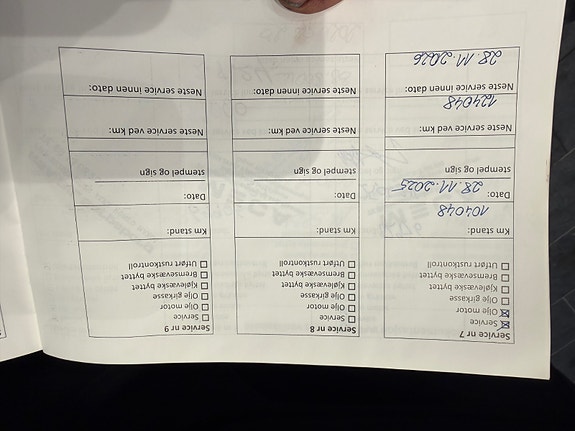 Service nr 7
☒ Service
☒ Olje motor
☐ Olje girkasse
☐ Kjølevæske byttet
☐ Bremsevæske byttet
☐ Utført rustkontroll
Km stand:
104048
Dato: 28.11.2025
stempel og sign
Neste service ved km:
124048
Neste service innen dato:
28.11.2026
Service nr 8
☐ Service
☐ Olje motor
☐ Olje girkasse
☐ Kjølevæske byttet
☐ Bremsevæske byttet
☐ Utført rustkontroll
Km stand:
Dato:
stempel og sign
Neste service ved km:
Neste service innen dato:
Service nr 9
☐ Service
☐ Olje motor
☐ Olje girkasse
☐ Kjølevæske byttet
☐ Bremsevæske byttet
☐ Utført rustkontroll
Km stand:
Dato:
stempel og sign
Neste service ved km:
Neste service innen dato: